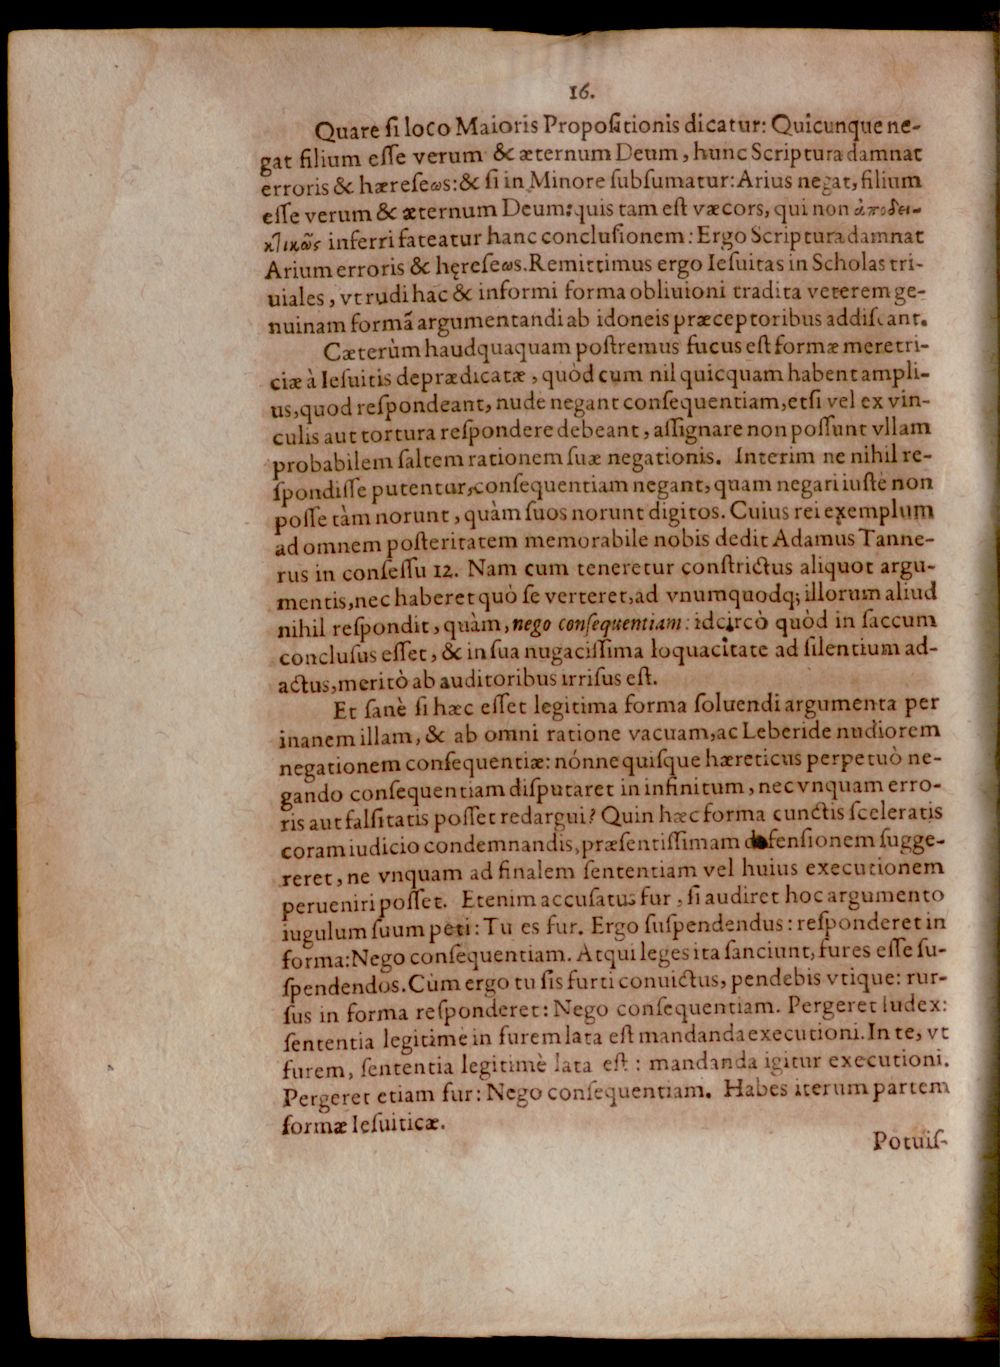 16.
Quare ſi loco Maioris Propoſitionis dicatur: Quicunque ne-
gat filium eſſe verum & æternum Deum, hunc Scriptura damnat
erroris & hæreſeως: & ſi in Minore ſubſumatur: Arius negat, filium
eſſe verum & æternum Deum: quis tam eſt væcors, qui non ἀποδει-
κτικῶς inferri fateatur hanc concluſionem: Ergo Scriptura damnat
Arium erroris & hęreſeως. Remittimus ergo Ieſuitas in Scholas tri-
uiales, vt rudi hac & informi forma obliuioni tradita veterem ge-
nuinam formã argumentandi ab idoneis præceptoribus addiſcant.
Cæterùm haudquaquam poſtremus fucus eſt formæ meretri-
ciæ à Ieſuitis deprædicatæ, quòd cum nil quicquam habent ampli-
us, quod reſpondeant, nude negant conſequentiam, etſi vel ex vin-
culis aut tortura reſpondere debeant, aſſignare non poſſunt vllam
probabilem ſaltem rationem ſuæ negationis. Interim ne nihil re-
ſpondiſſe putentur, conſequentiam negant, quam negari iuſtè non
poſſe tàm norunt, quàm ſuos norunt digitos. Cuius rei exemplum
ad omnem poſteritatem memorabile nobis dedit Adamus Tanne-
rus in conſeſſu 12. Nam cum teneretur conſtrictus aliquot argu-
mentis, nec haberet quò ſe verteret, ad vnumquodq; illorum aliud
nihil reſpondit, quàm, nego conſequentiam: idcircò quòd in ſaccum
concluſus eſſet, & in ſua nugaciſſima loquacitate ad ſilentium ad-
actus, meritò ab auditoribus irriſus eſt.
Et ſanè ſi hæc eſſet legitima forma ſoluendi argumenta per
inanem illam, & ab omni ratione vacuam, ac Leberide nudiorem
negationem conſequentiæ: nónne quiſque hæreticus perpetuò ne-
gando conſequentiam diſputaret in infinitum, nec vnquam erro-
ris aut falſitatis poſſet redargui? Quin hæc forma cunctis ſceleratis
coram iudicio condemnandis, præſentiſſimam defenſionem ſugge-
reret, ne vnquam ad finalem ſententiam vel huius executionem
perueniri poſſet. Etenim accuſatus fur, ſi audiret hoc argumento
iugulum ſuum peti: Tu es fur. Ergo ſuſpendendus: reſponderet in
forma: Nego conſequentiam. Atqui leges ita ſanciunt, fures eſſe ſu-
ſpendendos. Cùm ergo tu ſis furti conuictus, pendebis vtique: rur-
ſus in forma reſponderet: Nego conſequentiam. Pergeret Iudex:
ſententia legitimè in furem lata eſt mandanda executioni. In te, vt
furem, ſententia legitimè lata eſt: mandanda igitur executioni.
Pergeret etiam fur: Nego conſequentiam. Habes iterum partem
formæ Ieſuiticæ.
Potuiſ-